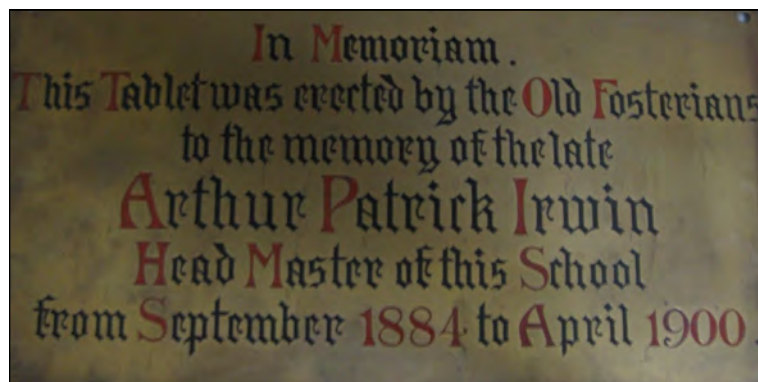 In Memoriam.
This Tablet was erected by the Old Fosterians
to the memory of the late
Arthur Patrick Irwin
Head Master of this School
from September 1884 to April 1900.